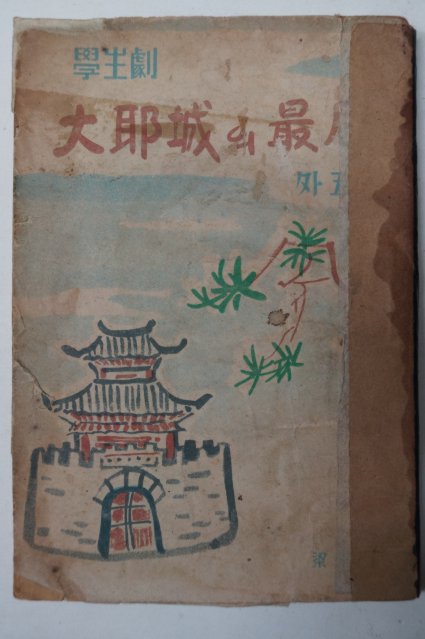 學生劇
大耶城의 最
外五
梁